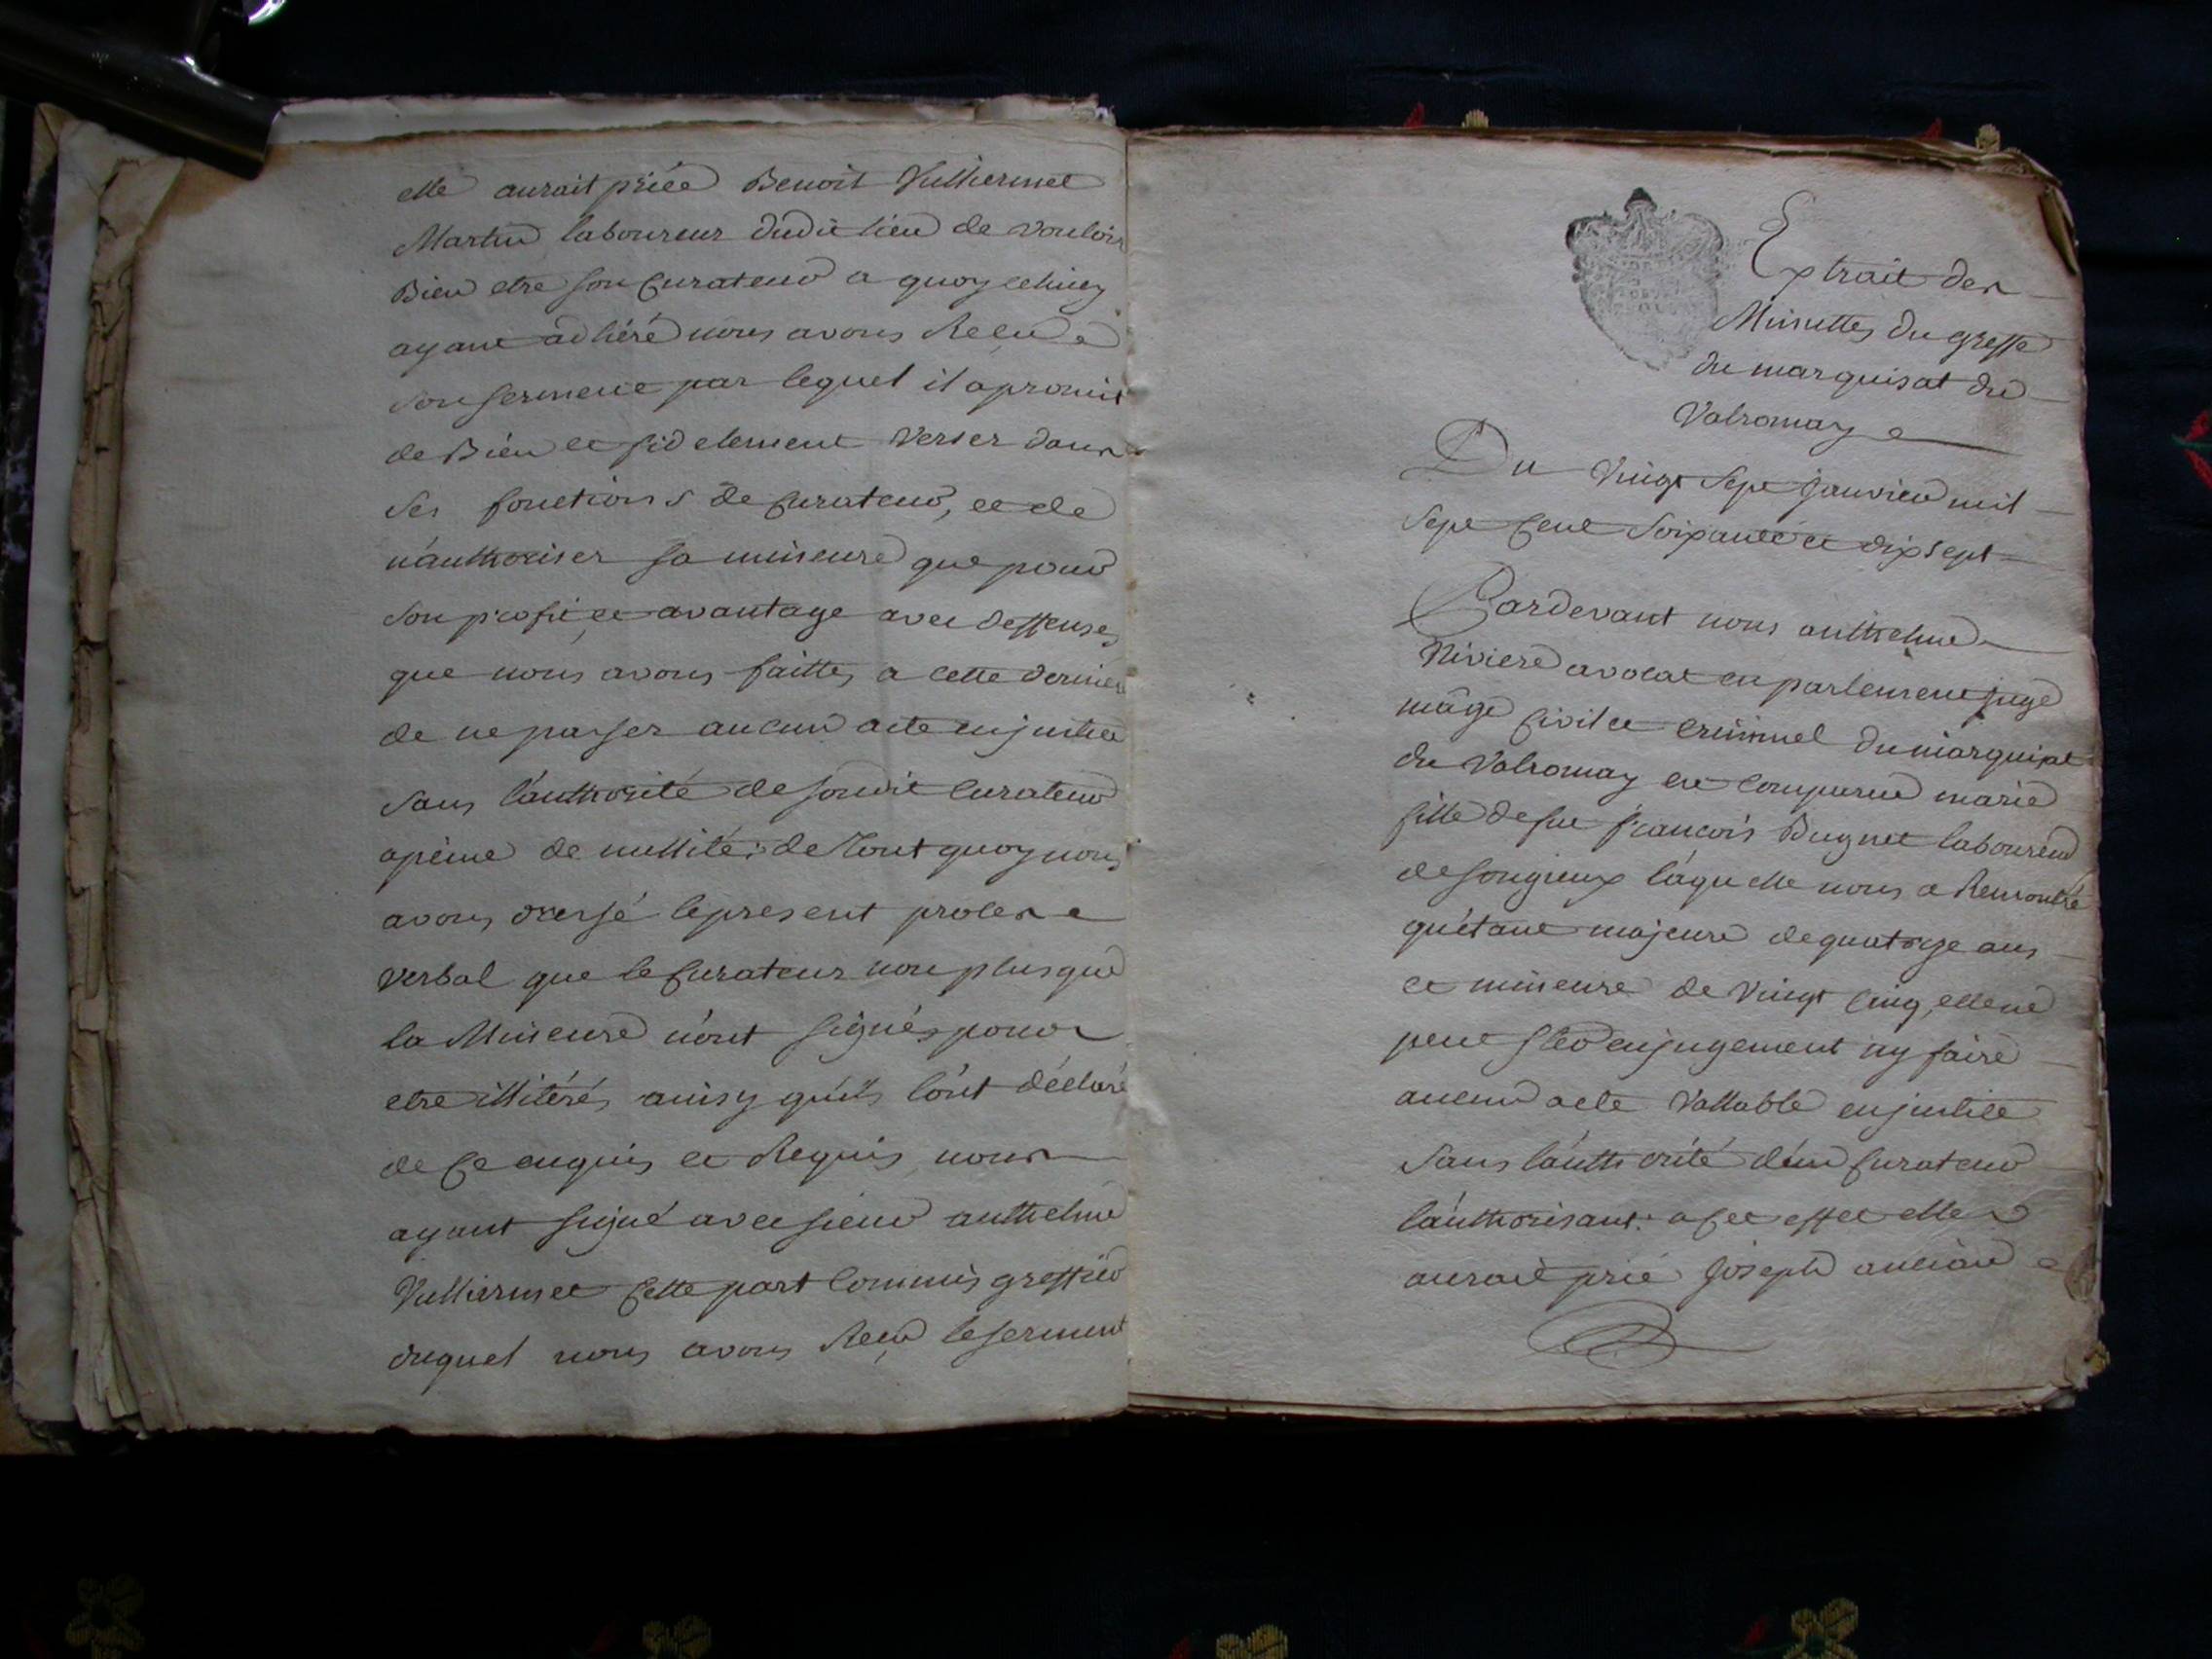 elle aurait priée Benoit Vulliermet
Martin laboureur dudit lieu de vouloir
Bien etre son Curateur a quoy celuicy
ayant adhéré nous avons Reçu
son serment par lequel il a promit
de Bien et fidelement verser dans
ses fonctions de Curateur, et de
n'authoriser sa mineure que pour
son profit et avantage avec deffenses
que nous avons faittes a cette derniere
de ne passer aucun acte en justice
sans l'authorité de sondit Curateur
a peine de nullité; de Tout quoy nous
avons dressé le present proces
verbal que le Curateur non plus que
la Mineure n'ont signés pour
etre illitérés ainsy qu'ils l'ont déclaré
de Ce enquis et Requis, nous
ayant signé avec sieur anthelme
Vulliermet Cette part Commis greffier
duquel nous avons Reçu le serment
Extrait des
Minuttes du greffe
du marquisat du
Valromay
Du vingt sept Janvier mil
sept Cent soixante et dix sept
Pardevant nous anthelme
Niviere avocat en parlement juge
mâge Civil et Criminel du marquisat
du Valromay est Comparue marie
fille de feu françois Bugnet laboureur
de songieux laquelle nous a Remontré
qu'étant majeure de quatorze ans
et mineure de vingt Cinq, elle ne
peut ster en jugement ny faire
aucun acte Vallable en justice
sans l'authorité d'un Curateur
l'authorisant: a Cet effet elle
aurait prié Joseph ancian